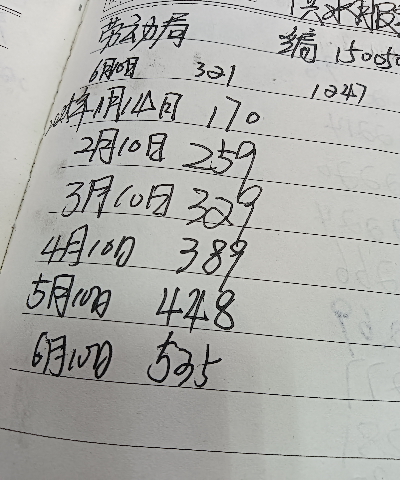 劳动局 编 15050
6月10日 321 1247
年1月14日 170
2月10日 259
3月10日 329
4月10日 389
5月10日 448
6月10日 535